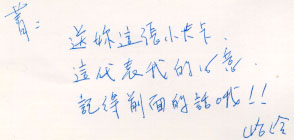 菁：
送妳這張小卡卡．
這代表我的心意．
記得前面的話哦！！